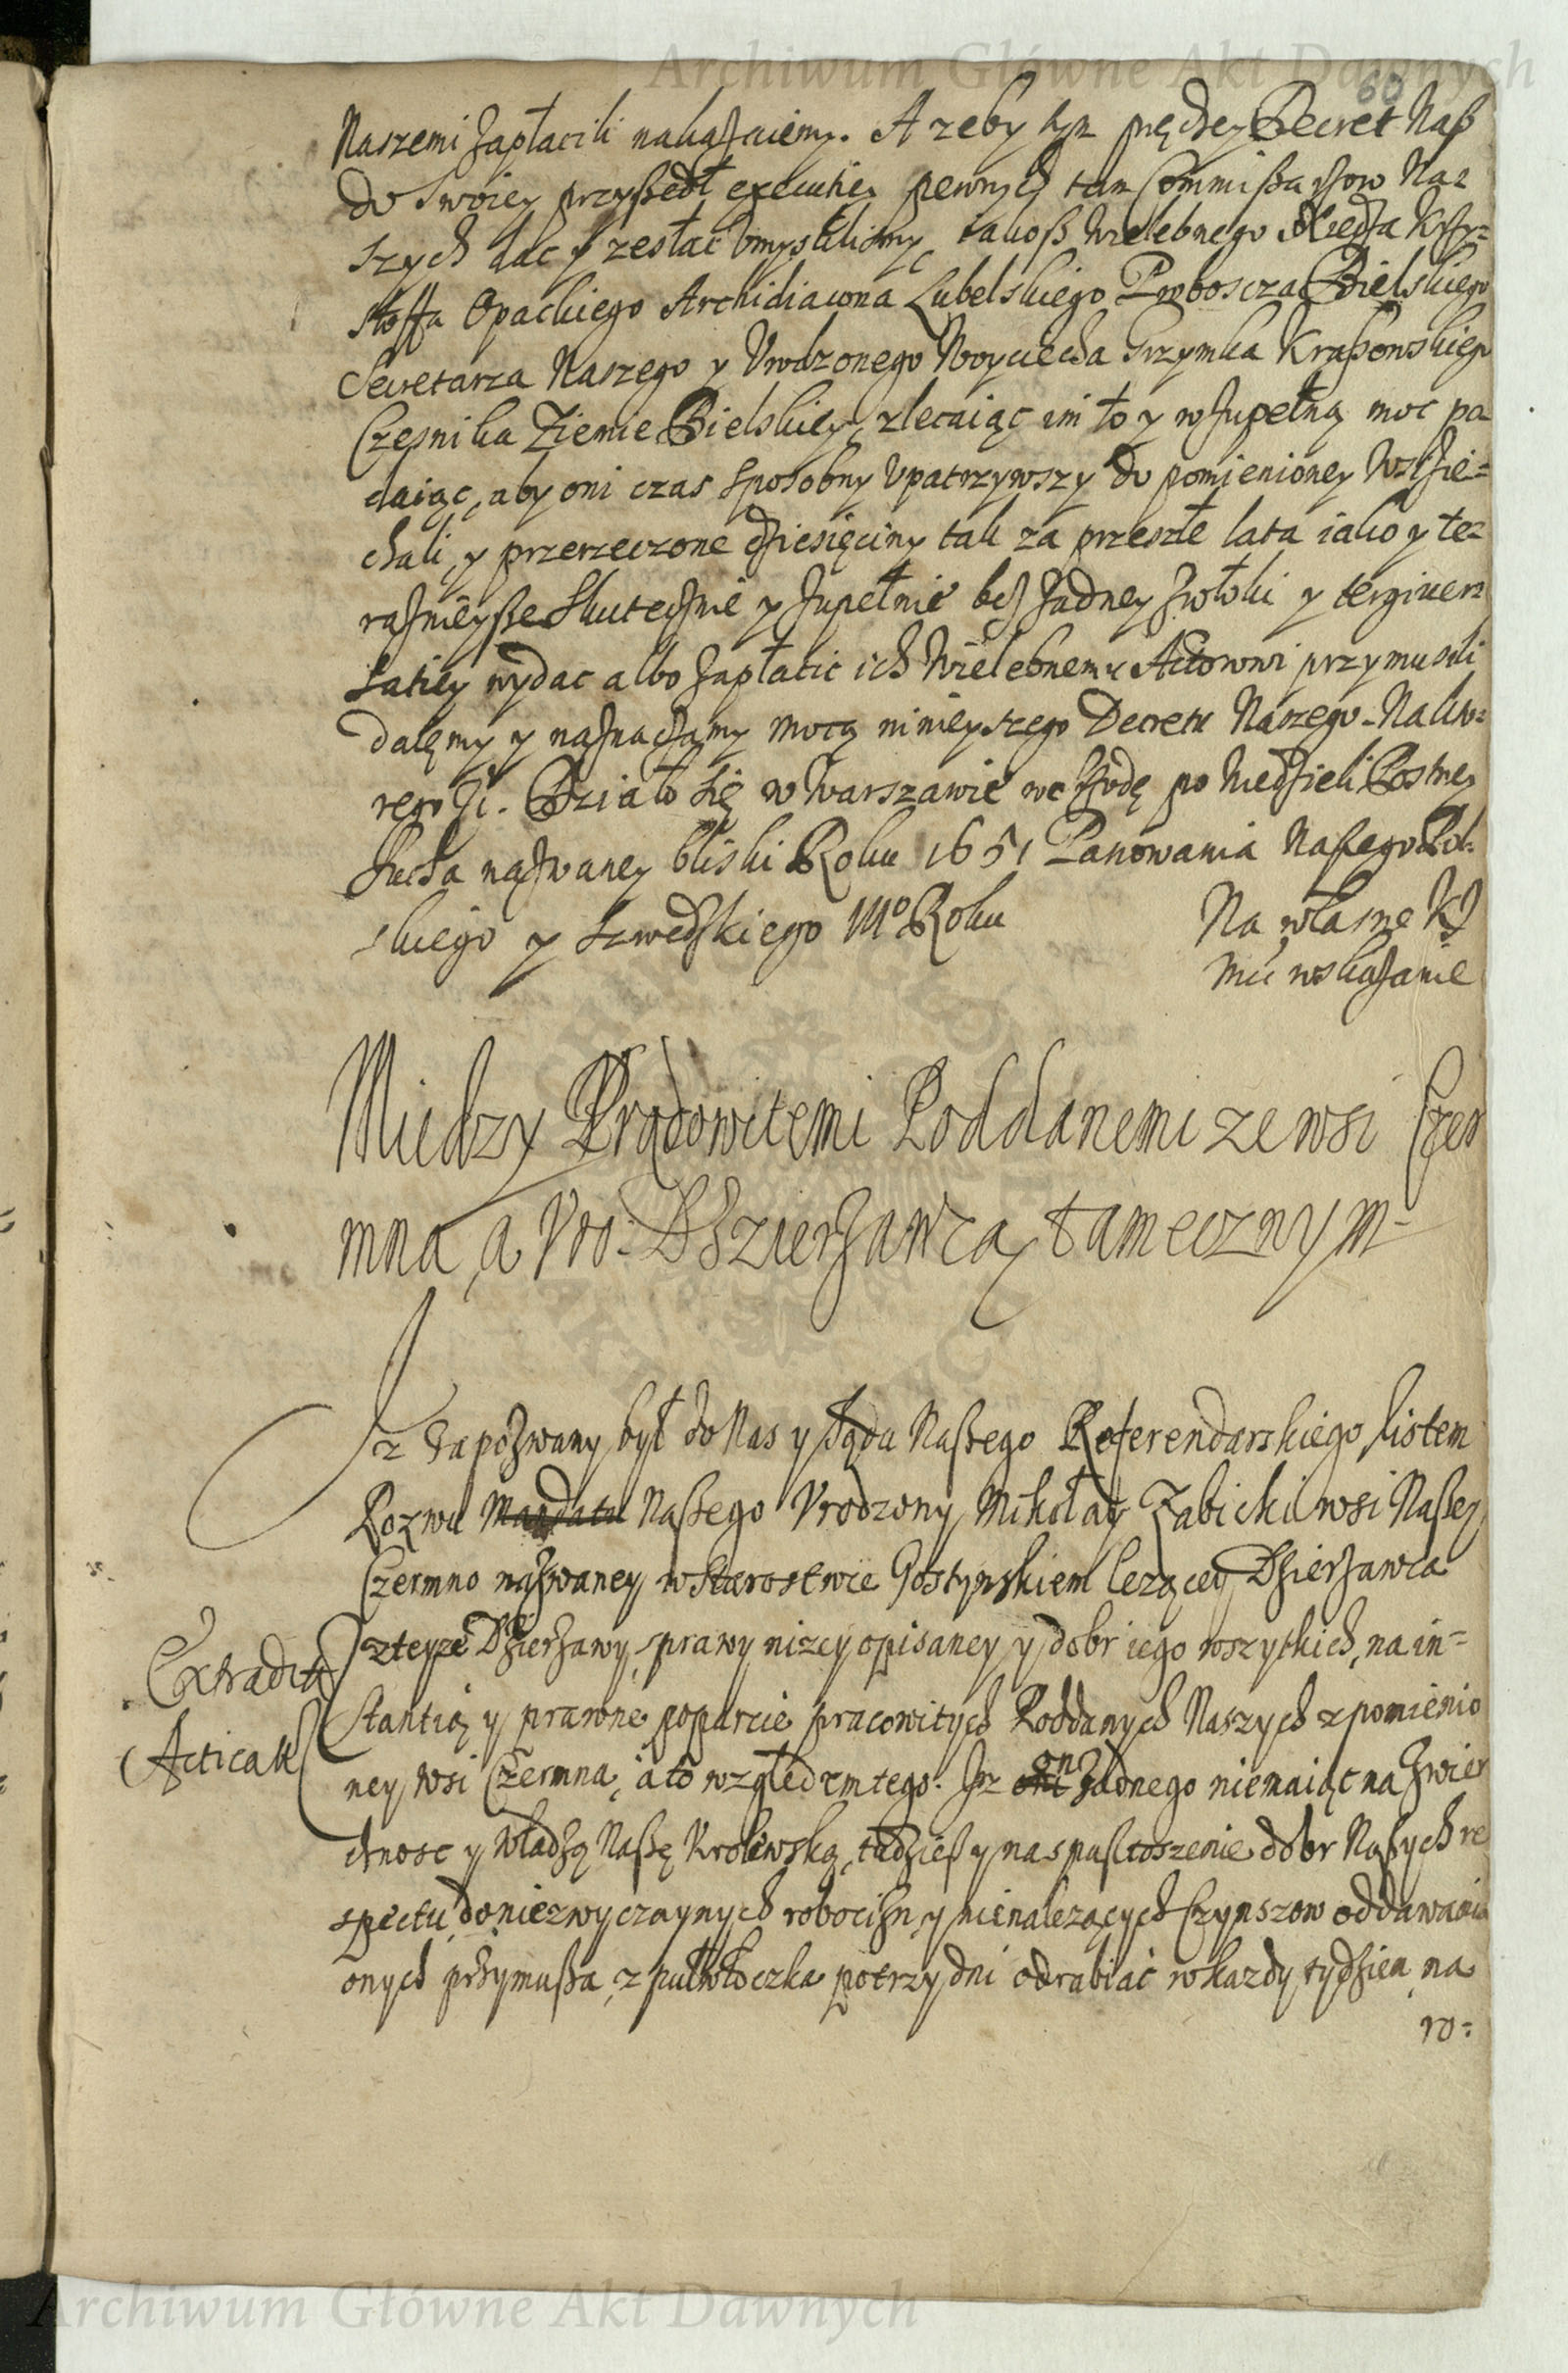 Archiwum Główne Akt Dawnych
60
Naszemi zapłacili nakazuiemy. A zeby tym prędzey Decret Nasz
do swoiey przyszedł executiey pewnych tam Commissarzow Na-
szych dac y zesłac umyslilismy, iakosz Wielebnego Xiędza Krzy-
stoffa Opackiego Archidiacona Lubelskiego Proboscza Bielskiego
Secretarza Naszego y Vrodzonego Woyciecha Grzymka Krassowskiego
Czesnika Ziemie Bielskiey, zlecaiąc im to y w zupełną moc po
daiąc, aby oni czas sposobny upatrzywszy do pomienioney Wsi zie-
chali, y przerzeczone dziesięciny tak za przeszłe lata iako y te-
raznieysze skutecznie y zupełnie bez zadney zwłoki y tergiver-
satiey wydac albo zapłacic ich Wielebnemu Actorowi przymusili
dalęmy y naznaczamy mocą ninieyszego Decretu Naszego. Na kto-
rego etc. Działo się w Warszawie we szrodę po Niedzieli Postney
Sucha nazwaney bliski Roku 1651 Panowania Naszego Pol-
skiego y Szwedzkiego IIIº Roku
Na własne KJ
Mci wskazanie
Miedzy Pracowitemi Poddanemi ze wsi Czer
mna, a Vro: Dzierzawcą tamecznym-
Iz zapozwany był do Nas y Sądu Naszego Referendarskiego listem
Pozwu Mandatu Naszego Vrodzony Mikołay Zabicki wsi Naszey
Czermno nazwaney w Starostwie Gostynskiem lezącey Dzierzawca
z teyze Dzierzawy, sprawy nizey opisaney y dobr iego wszytkich, na in-
stantią y prawne poparcie pracowitych Poddanych Naszych z pomienio
ney wsi Czermna, a to względem tego: Iz on zadnego niemaiąc na zwier
chnosc y władzą Naszę Krolewską, tudziesz y na spustoszenie dobr Naszych re
spectu, do niezwyczaynych robocizn y nienalezących Czynszow oddawania
onych przymusza, z pułwłoczka po trzy dni odrabiac w kazdy tydzien, na
ro-
Extradit
Acticat
Archiwum Główne Akt Dawnych